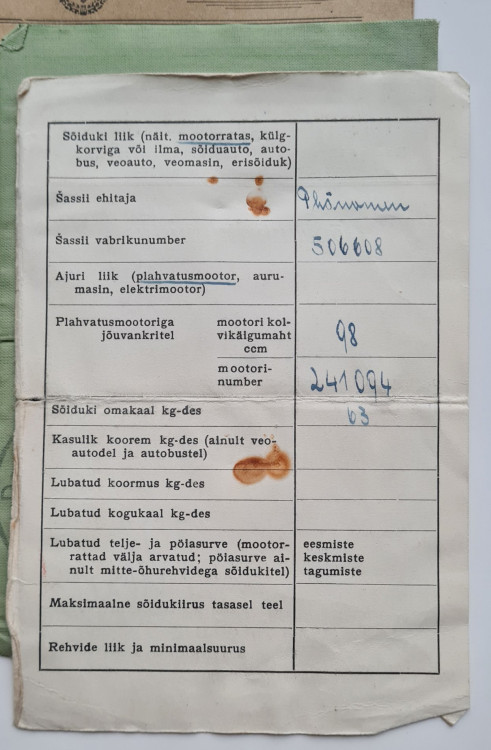 Sõiduki liik (näit. mootorratas, külg-
korviga või ilma, sõiduauto, auto-
bus, veoauto, veomasin, erisõiduk)
Šassii ehitaja Phänomen
Šassii vabrikunumber 506608
Ajuri liik (plahvatusmootor, auru-
masin, elektrimootor)
Plahvatusmootoriga
jõuvankritel
mootori kol-
vikäigumaht
ccm
98
mootori-
number
241094
Sõiduki omakaal kg-des 63
Kasulik koorem kg-des (ainult veo-
autodel ja autobustel)
Lubatud koormus kg-des
Lubatud kogukaal kg-des
Lubatud telje- ja pöiasurve (mootor-
rattad välja arvatud; pöiasurve ai-
nult mitte-õhurehvidega sõidukitel)
eesmiste
keskmiste
tagumiste
Maksimaalne sõidukiirus tasasel teel
Rehvide liik ja minimaalsuurus